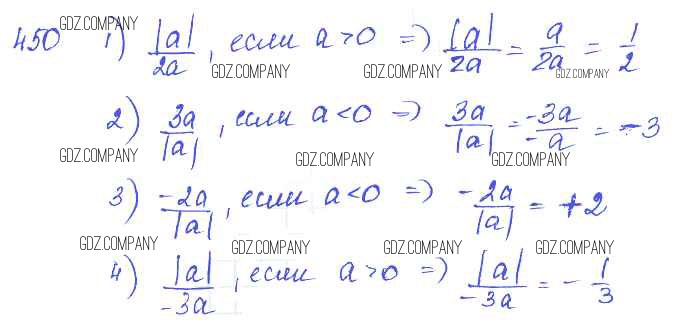 GDZ.COMPANY
450 1) |a|/2a, если a>0 => |a|/2a = a/2a = 1/2
GDZ.COMPANY GDZ.COMPANY GDZ.COMPANY
2) 3a/|a|, если a<0 => 3a/|a| = -3a/-a = -3
GDZ.COMPANY GDZ.COMPANY GDZ.COMPANY
3) -2a/|a|, если a<0 => -2a/|a| = +2
GDZ.COMPANY GDZ.COMPANY GDZ.COMPANY GDZ.COMPANY
4) |a|/-3a, если a>0 => |a|/-3a = -1/3